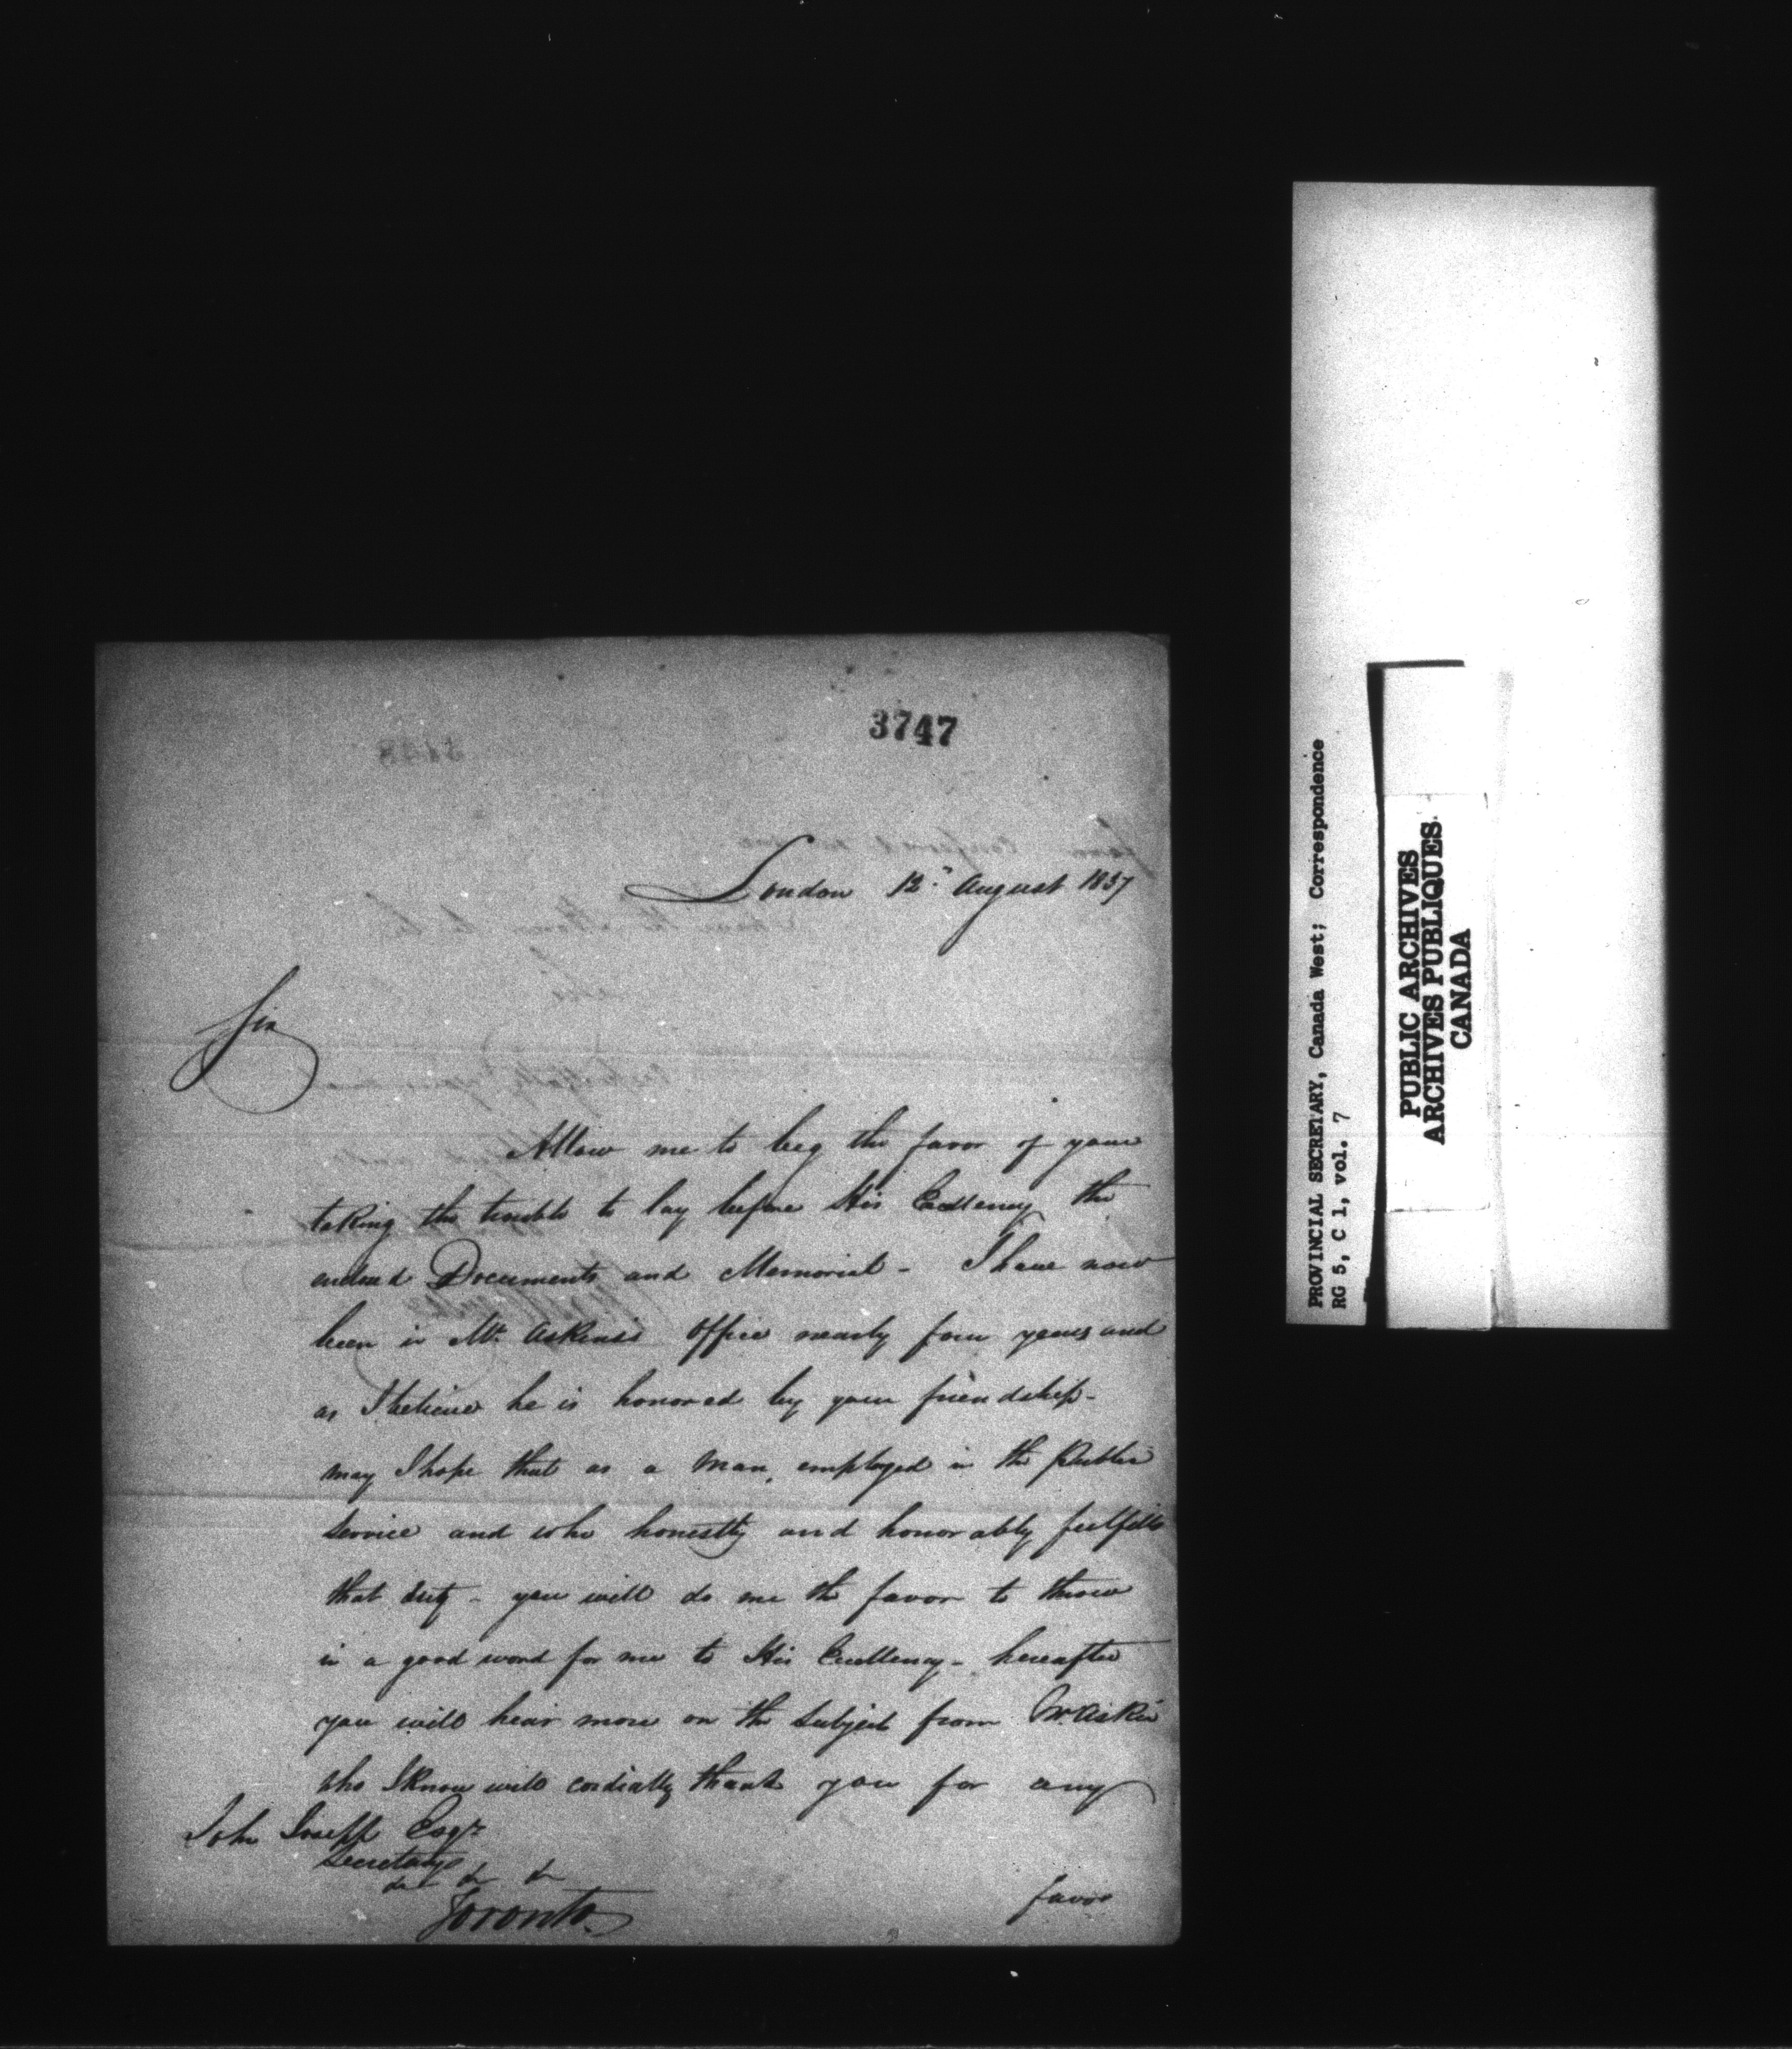 3747
London 12th August 1837
Sir
Allow me to beg the favor of your
taking the trouble to lay before His Excellency the
enclosed Documents and Memorial - I have now
been in Mr. Askin's Office nearly four years and
as I believe he is honored by your friendship -
may I hope that as a Man, employed in the Public
Service and who honestly and honorably fulfills
that duty - you will do me the favor to throw
in a good word for me to His Excellency - hereafter
you will hear more on the subject from Mr. Askin
who I know will cordially thank you for any
favor
John Joseph Esqr
Secretary
&c &c &c
Toronto
PROVINCIAL SECRETARY, Canada West; Correspondence
RG 5, C 1, vol. 7
PUBLIC ARCHIVES
ARCHIVES PUBLIQUES
CANADA